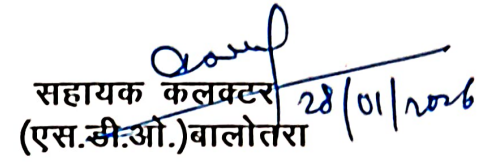 सहायक कलक्टर 28/01/2026
(एस.डी.ओ.)बालोतरा